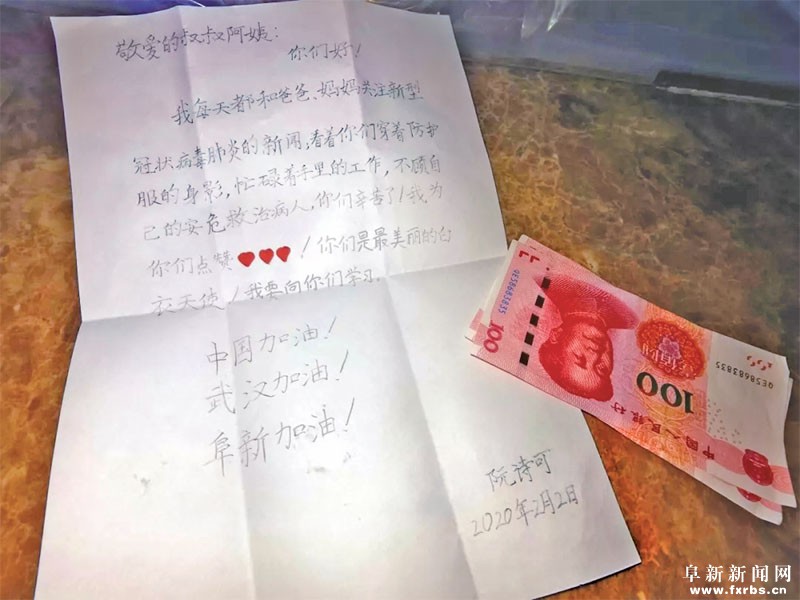 敬爱的叔叔阿姨：
你们好！
我每天都和爸爸、妈妈关注新型
冠状病毒肺炎的新闻，看着你们穿着防护
服的身影，忙碌着手里的工作，不顾自
己的安危救治病人，你们辛苦了！我为
你们点赞♥♥♥！你们是最美丽的白
衣天使！我要向你们学习。
中国加油！
武汉加油！
阜新加油！
阮诗可
2020年2月2日
QE58683835
100
100
中国人民银行
QE58683835
100
阜新新闻网
www.fxrbs.cn